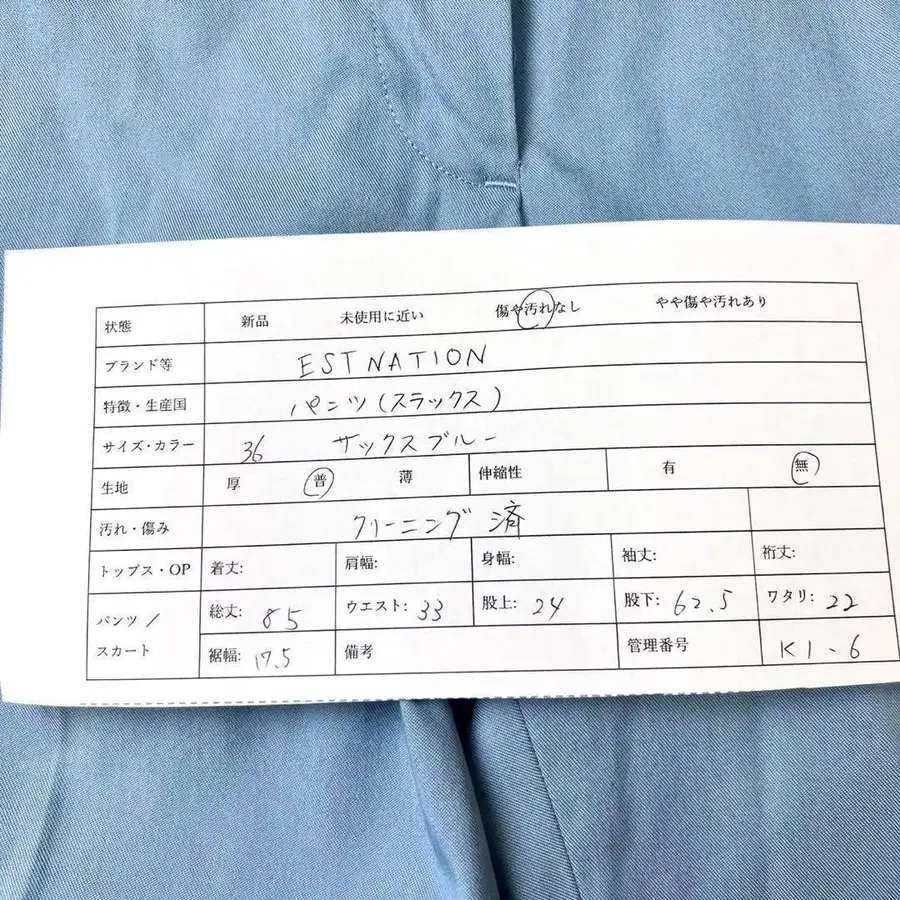 状態 新品 未使用に近い 傷や汚れなし やや傷や汚れあり
ブランド等 ESTNATION
特徴・生産国 パンツ(スラックス)
サイズ・カラー 36 サックスブルー
生地 厚 普 薄 伸縮性 有 無
汚れ・傷み クリーニング済
トップス・OP 着丈: 肩幅: 身幅: 袖丈: 裄丈:
パンツ/スカート 総丈: 85 ウエスト: 33 股上: 24 股下: 62.5 ワタリ: 22
裾幅: 17.5 備考 管理番号 K1-6